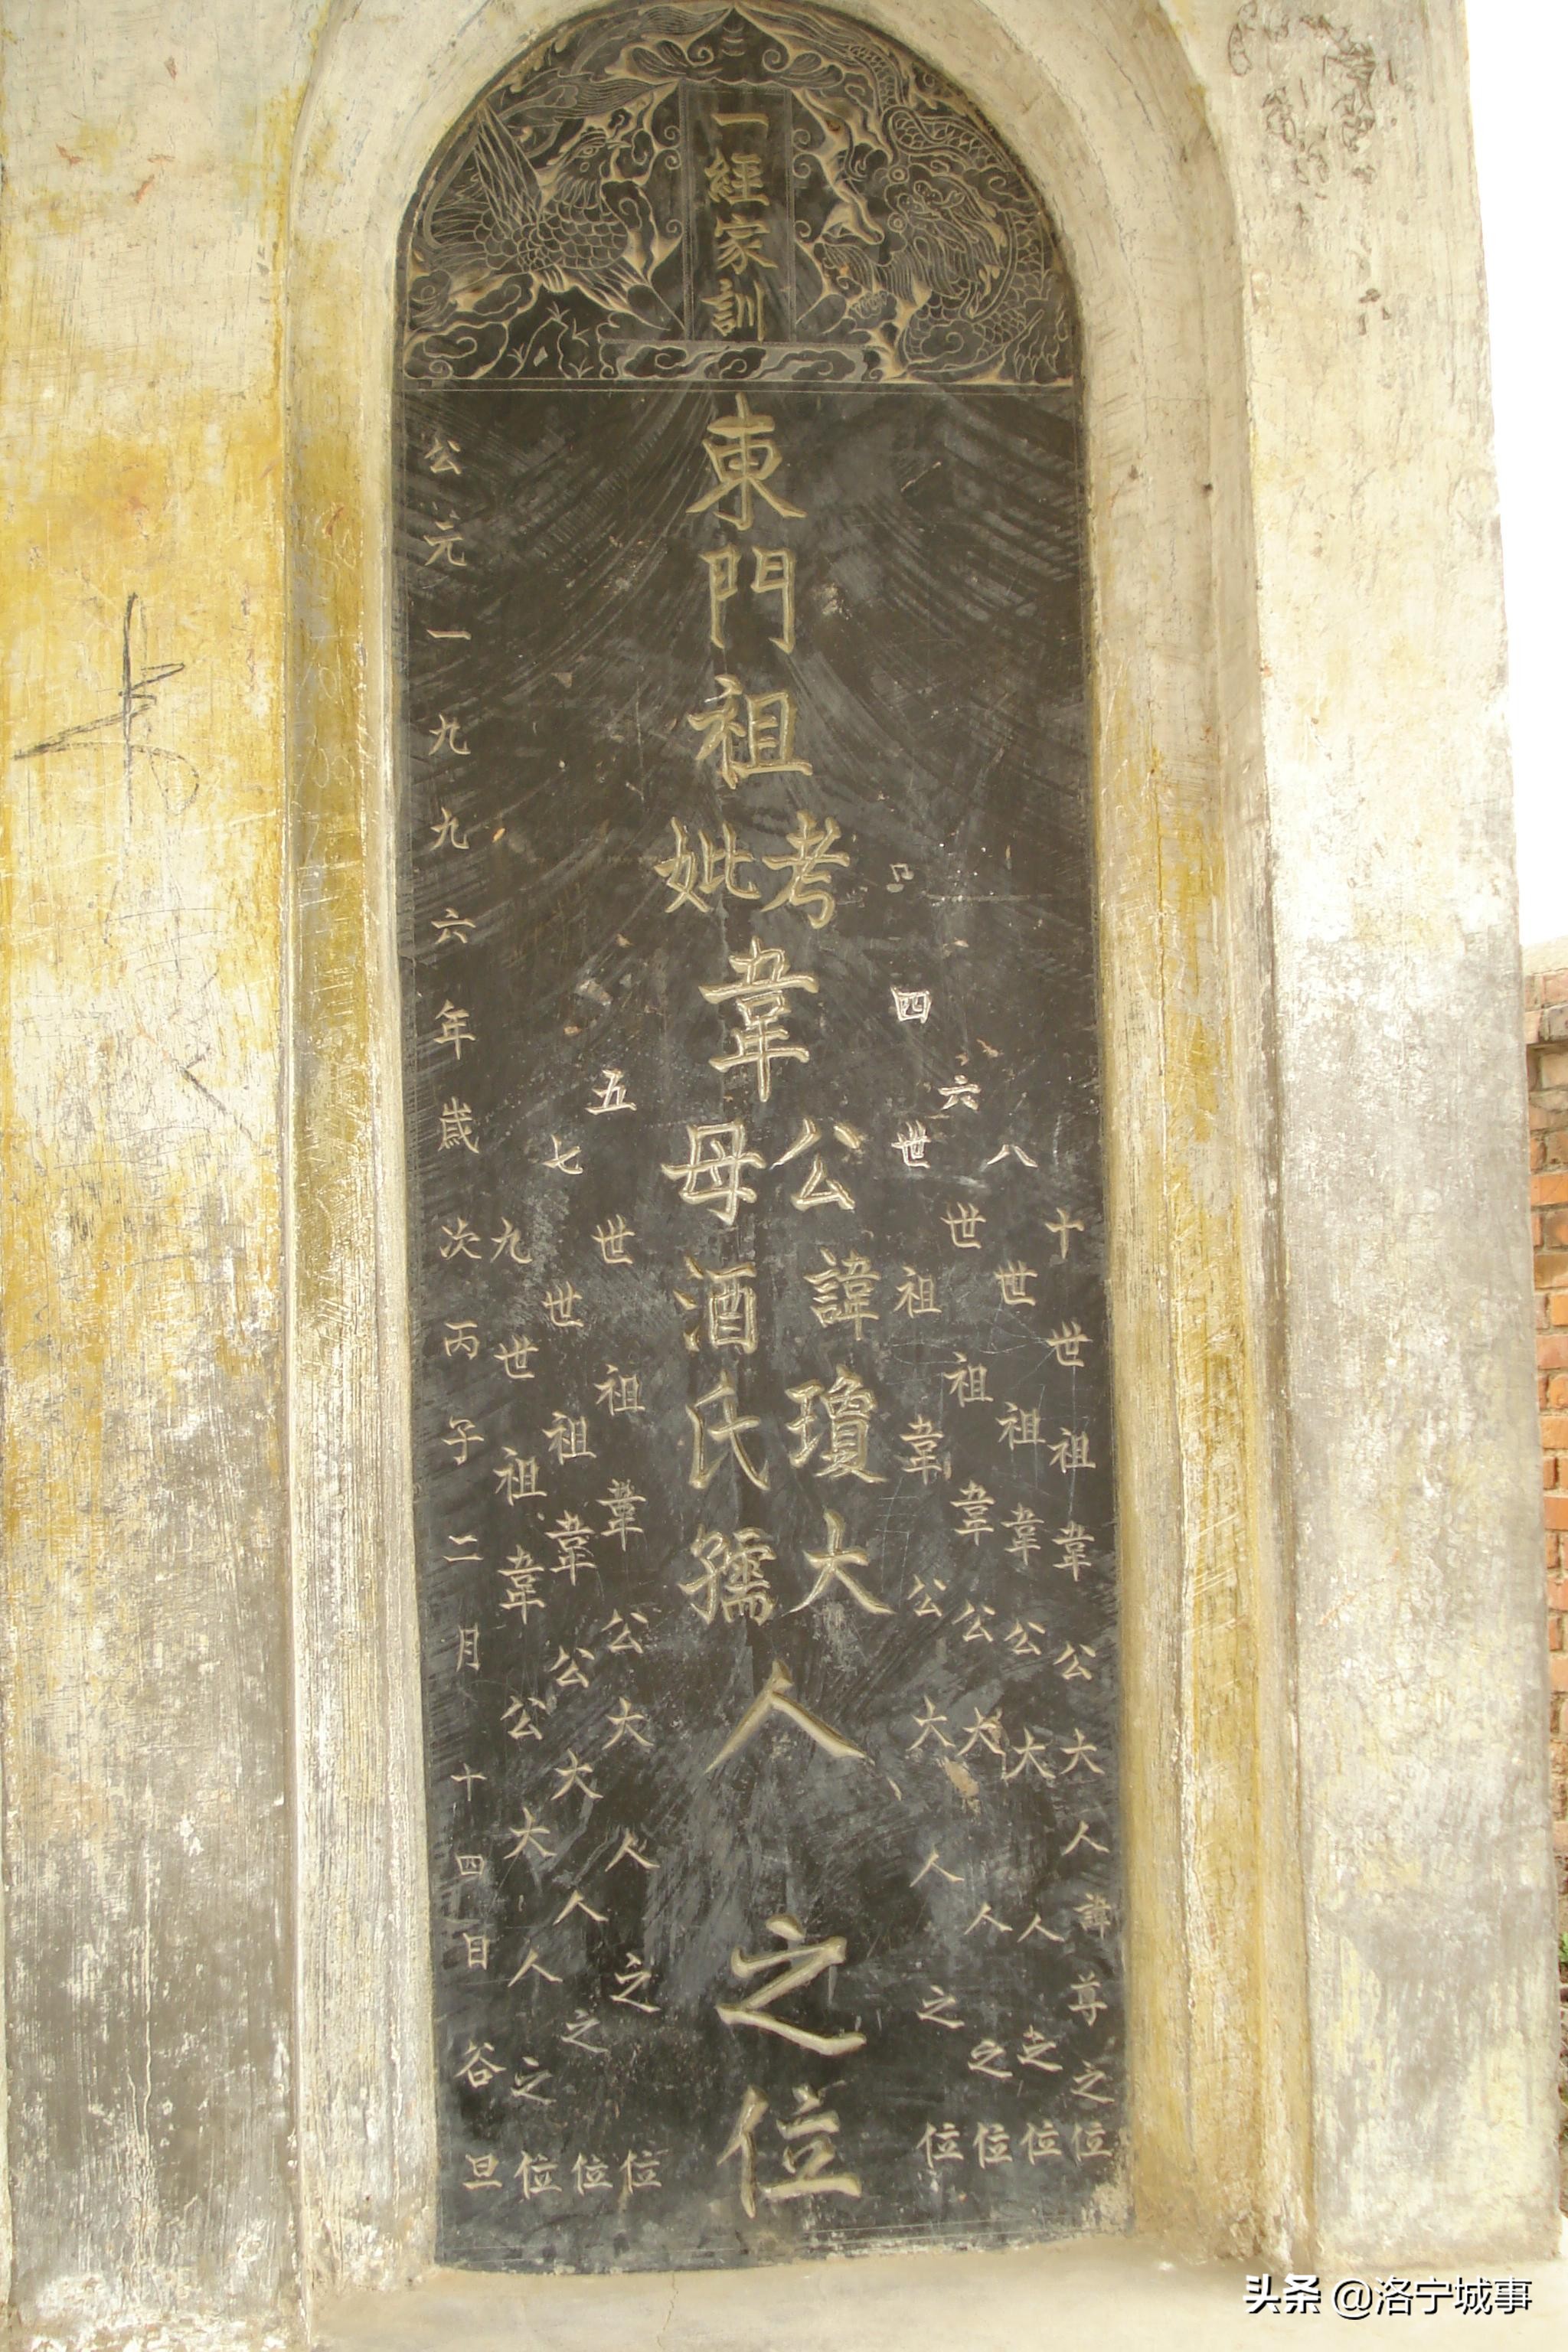 一經家訓
十世祖韋公大人諱尊之位
八世祖韋公大人之位
六世祖韋公大人之位
四世祖韋公大人之位
東門祖考妣韋公諱瓊大母酒氏孺人之位
五世祖韋公大人之位
七世祖韋公大人之位
九世祖韋公大人之位
公元一九九六年歲次丙子二月十四日谷旦
头条 @洛宁城事